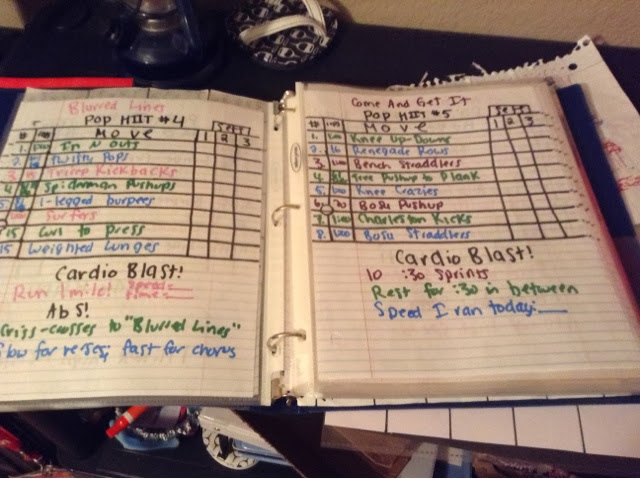 Blurred Lines
POP HIIT #4
Sets
# Move 1 2 3
1. In N Outs
2. Twisty Pops
3 Kickbacks
4 Spiderman Pushups
5 1-legged burpees
Surfers
15 Curl to press
15 Weighted Lunges
Cardio Blast!
Run 1 mile! Speed=
time=
Abs!
Criss-crosses to "Blurred Lines"
Slow for verses; fast for chorus
Come And Get It
POP HIIT #5
Sets
# Move 1 2 3
1. Knee Up-Downs
2. 16 Renegade Rows
3. Bench Straddlers
4. Tree Pushup to Plank
5. Knee Crazies
6. Bosu Pushup
7. Charleston Kicks
8. Bosu Straddlers
Cardio Blast!
10 :30 Sprints
Rest for :30 in between
Speed I ran today: